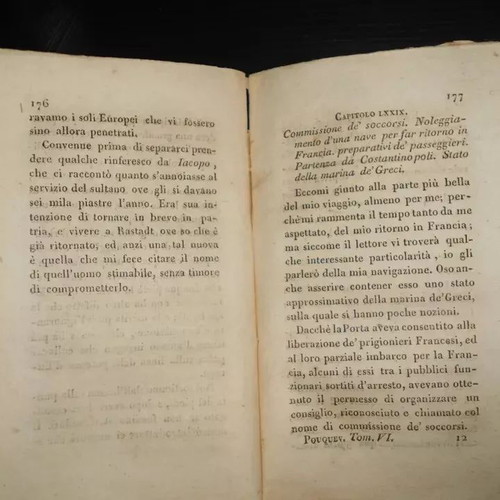 176
ravamo i soli Europei che vi fossero
sino allora penetrati.
Convenne prima di separarci pren-
dere qualche rinfresco da Iacopo,
che ci raccontò quanto s'annoiasse al
servizio del sultano ove gli si davano
sei mila piastre l'anno. Era sua in-
tenzione di tornare in breve in pa-
tria, e vivere a Rastadt ove so che è
già ritornato; ed anzi una tal nuova
è quella che mi fece citare il nome
di quell'uomo stimabile, senza timore
di comprometterlo.
177
CAPITOLO LXXIX.
Commissione de' soccorsi. Noleggia-
mento d'una nave per far ritorno in
Francia. preparativi de' passeggieri.
Partenza da Costantinopoli. Stato
della marina de' Greci.
Eccomi giunto alla parte più bella
del mio viaggio, almeno per me; per-
chè mi rammenta il tempo tanto da me
aspettato, del mio ritorno in Francia;
ma siccome il lettore vi troverà qual-
che interessante particolarità, io gli
parlerò della mia navigazione. Oso an-
che asserire contener esso uno stato
approssimativo della marina de' Greci,
sulla quale si hanno poche nozioni.
Dacchè la Porta aveva consentito alla
liberazione de' prigionieri Francesi, ed
al loro parziale imbarco per la Fran-
cia, alcuni di essi tra i pubblici fun-
zionari sortiti d'arresto, avevano otte-
nuto il permesso di organizzare un
consiglio, riconosciuto e chiamato col
nome di commissione de' soccorsi.
POUQUEV. Tom. VI. 12